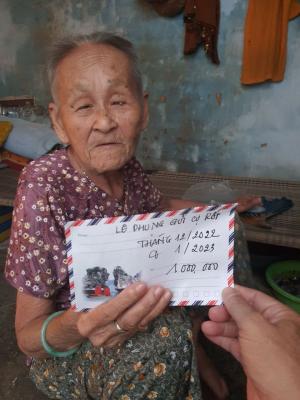 LÊ PHỤNG GỬI CỤ KÉT
THÁNG 12/2022
1/2023
1.000,000